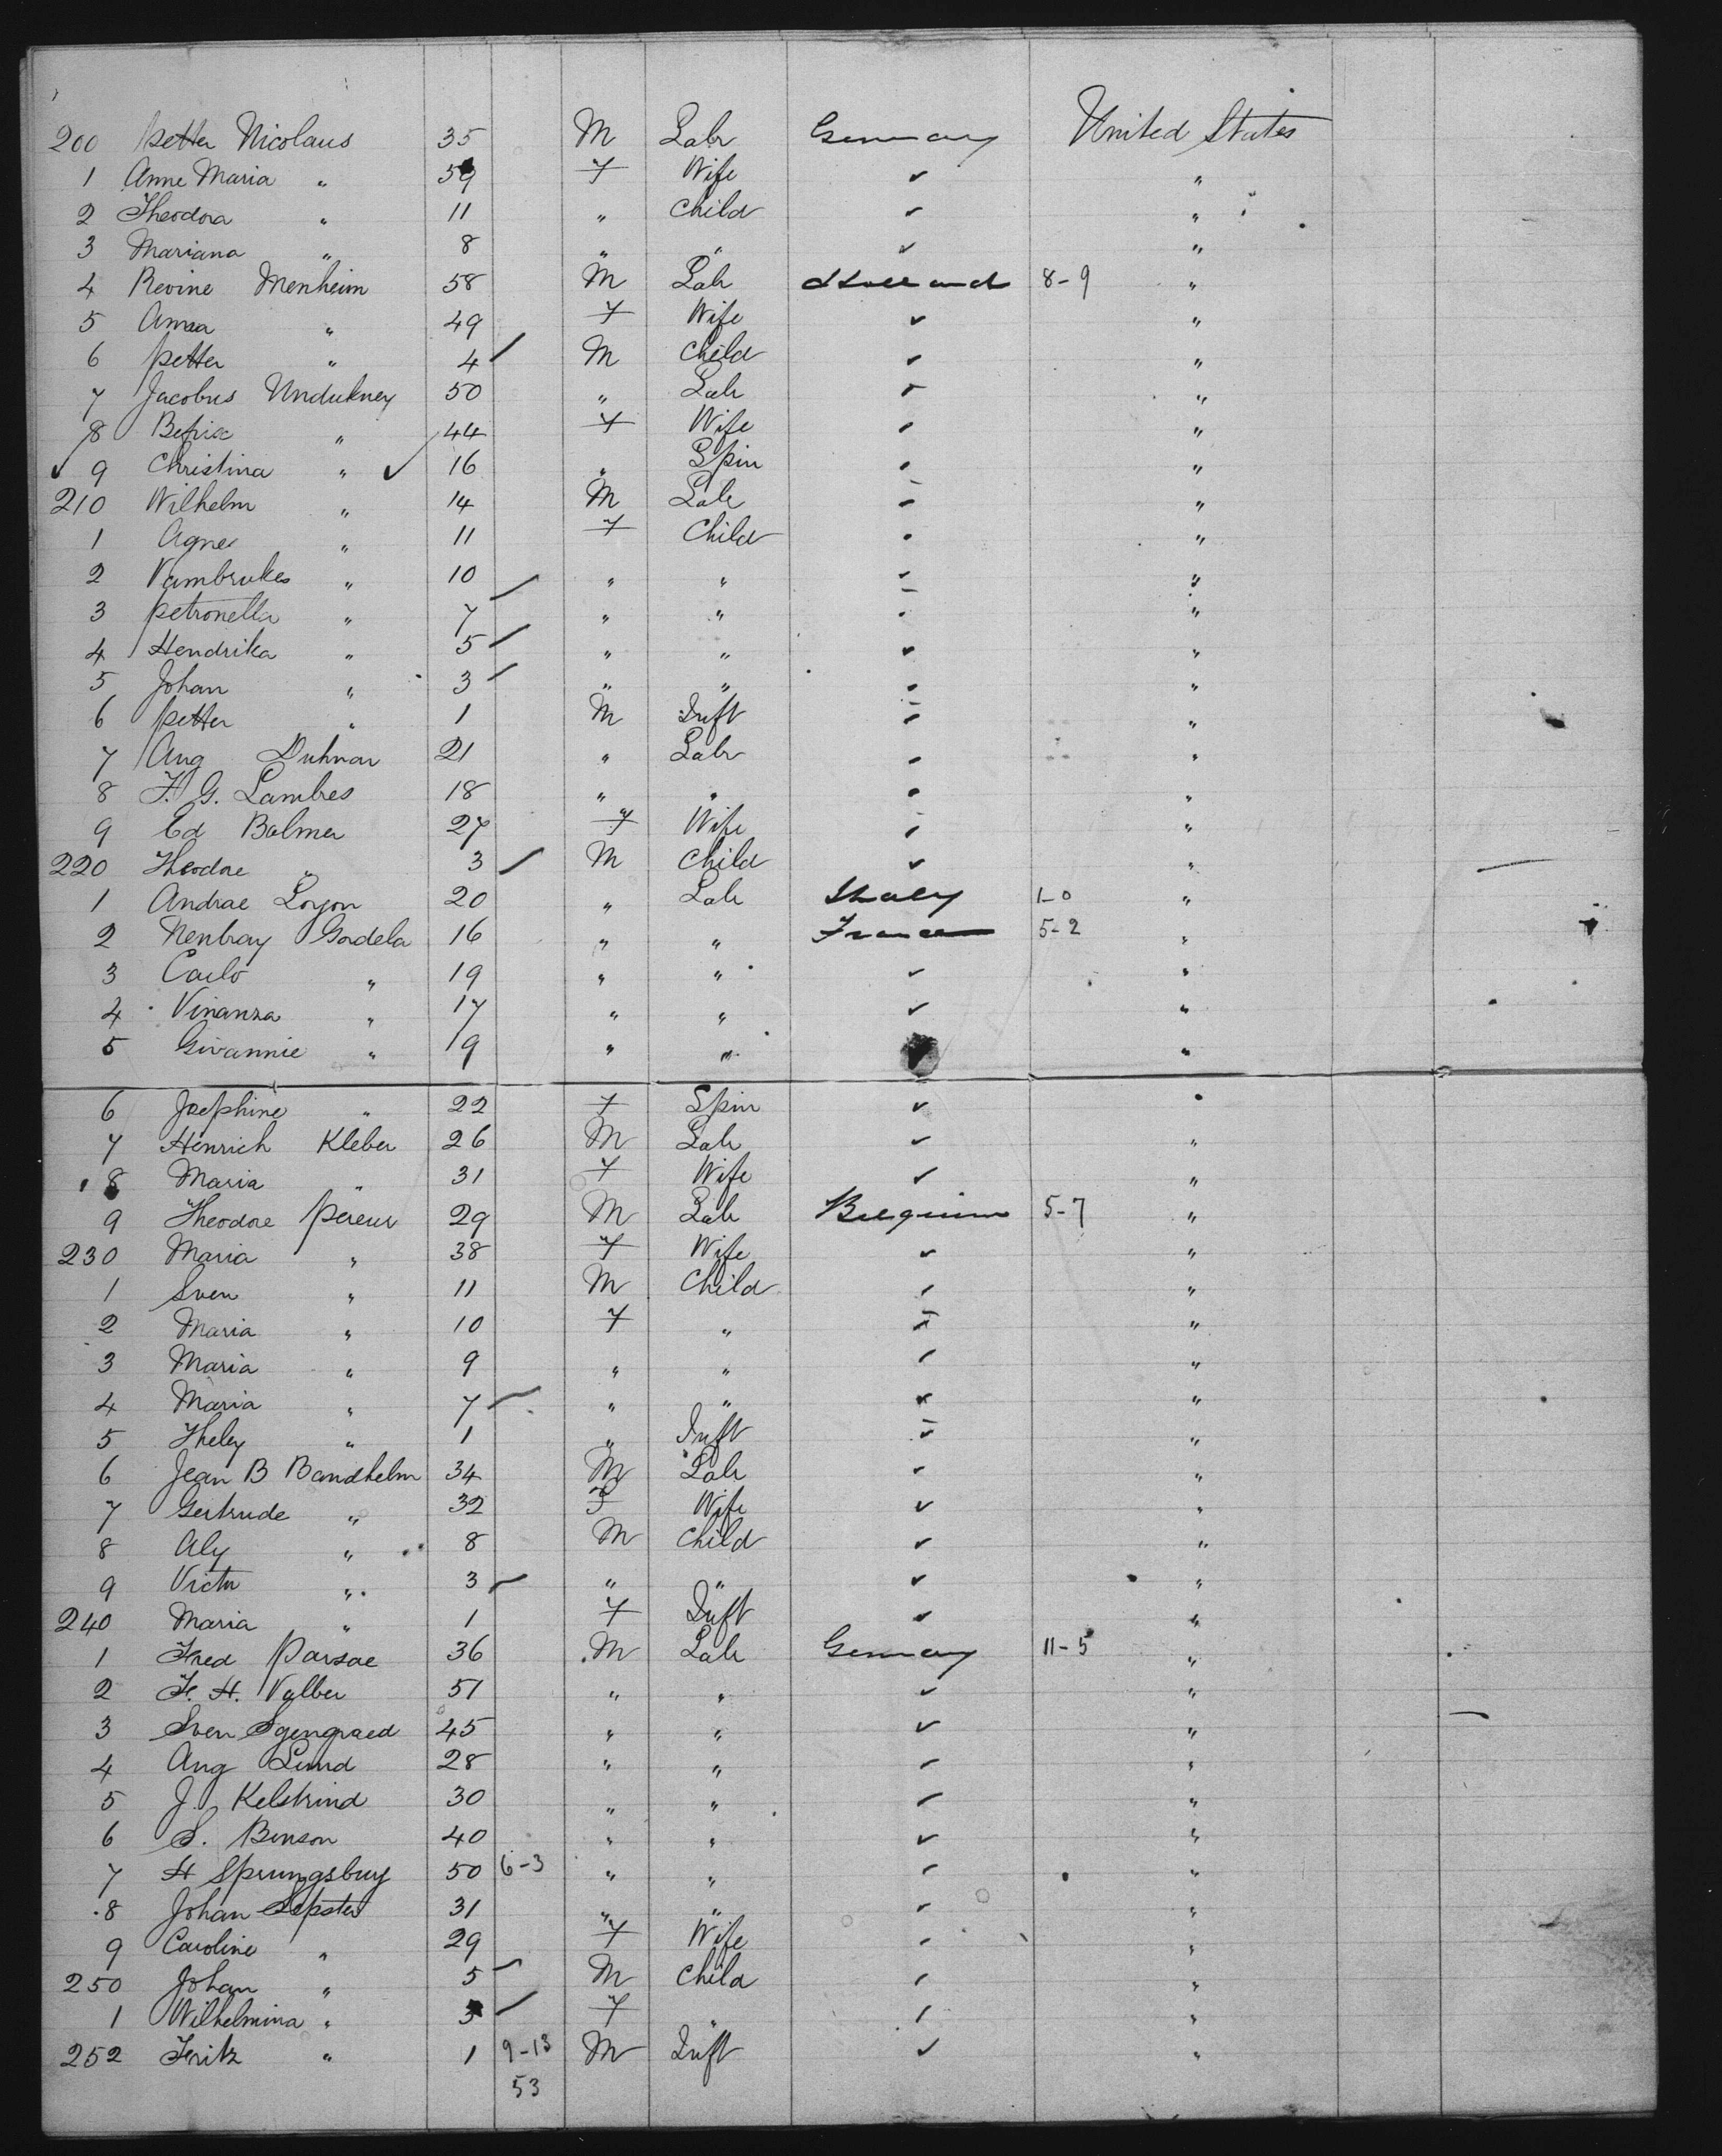 200 Petter Nicolaus 35 M Labr Germany United States
1 Anne Maria " 59 F Wife ✓ "
2 Theodora " 11 " Child ✓ "
3 Mariana " 8 " " ✓ "
4 Revine Menheim 58 M Labr Holland 8-9 "
5 Anna " 49 F Wife ✓ "
6 Petter " 4 M Child ✓ "
7 Jacobus Undukney 50 " Labr "
8 " 44 F Wife "
9 Christina " 16 " Spin "
210 Wilhelm " 14 M Labr "
1 Agnes " 11 F Child "
2 Vambrukes " 10 " " "
3 Petronella " 7 " " "
4 Hendrika " 5 " " ✓ "
5 Johan " 3 " " "
6 Petter " 1 M Inft "
7 Aug Duhnar 21 " Labr "
8 F. G. Lambres 18 " " "
9 Ed Balmer 27 F Wife "
220 Theodore " 3 M Child ✓ "
1 Andrae Loyon 20 " Labr Italy 1-0 "
2 Nenbray Gordela 16 " " France 5-2 "
3 Carlo " 19 " " ✓ "
4 Vinanza " 17 " " ✓ "
5 Givannie " 19 " " ✓ "
6 Josephine " 22 F Spin ✓ "
7 Henrich Kleber 26 M Labr ✓ "
8 Maria " 31 F Wife ✓ "
9 Theodore Pereur 29 M Labr Belgium 5-7 "
230 Maria " 38 F Wife ✓ "
1 Sven " 11 M Child "
2 Maria " 10 F " "
3 Maria " 9 " " "
4 Maria " 7 " " "
5 Theley " 1 " Inft "
6 Jean B Bandhelm 34 M Labr "
7 Gertrude " 32 F Wife ✓ "
8 Aly " 8 M Child ✓ "
9 Victor " 3 " " ✓ "
240 Maria " 1 F Inft ✓ "
1 Fred Parsae 36 M Labr Germany 11-5 "
2 F. H. Valber 51 " " ✓ "
3 Sven Sgengraed 45 " " ✓ "
4 Aug Lund 28 " " "
5 J. Kelstrind 30 " " "
6 S. Benson 40 " " ✓ "
7 H Sprungsbuy 50 6-3 " " "
8 Johan 31 " " "
9 Caroline " 29 F Wife "
250 Johan " 5 M Child "
1 Wilhelmina " 3 F " "
252 Fritz " 1 9-13 M Inft ✓ "
53